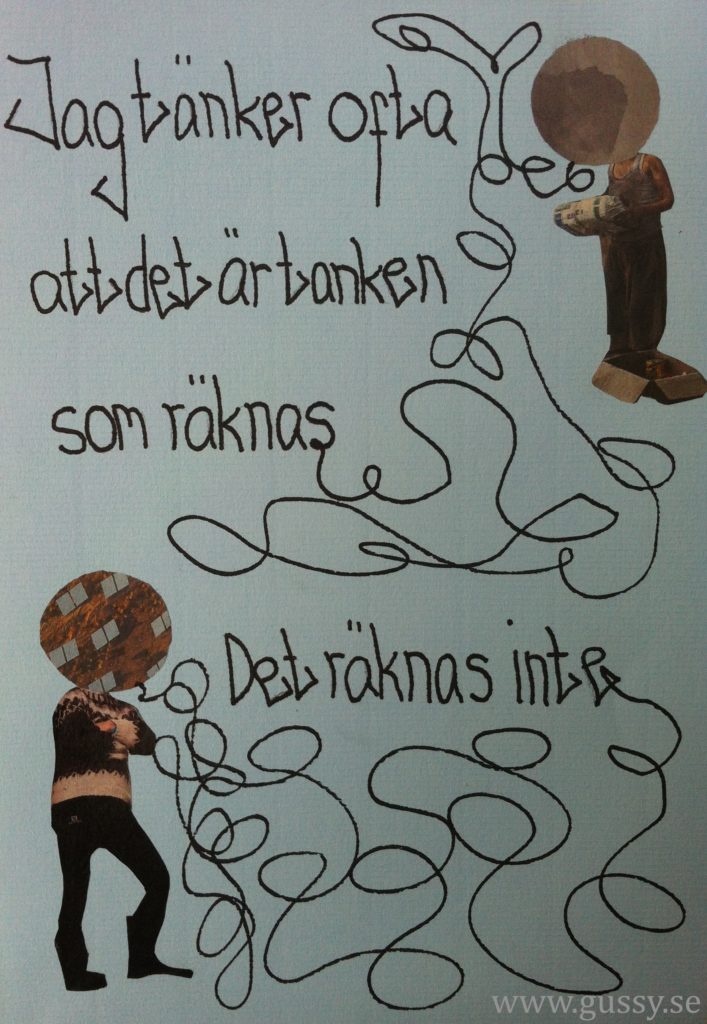 Jag tänker ofta
att det är tanken
som räknas
Det räknas inte
www.gussy.se